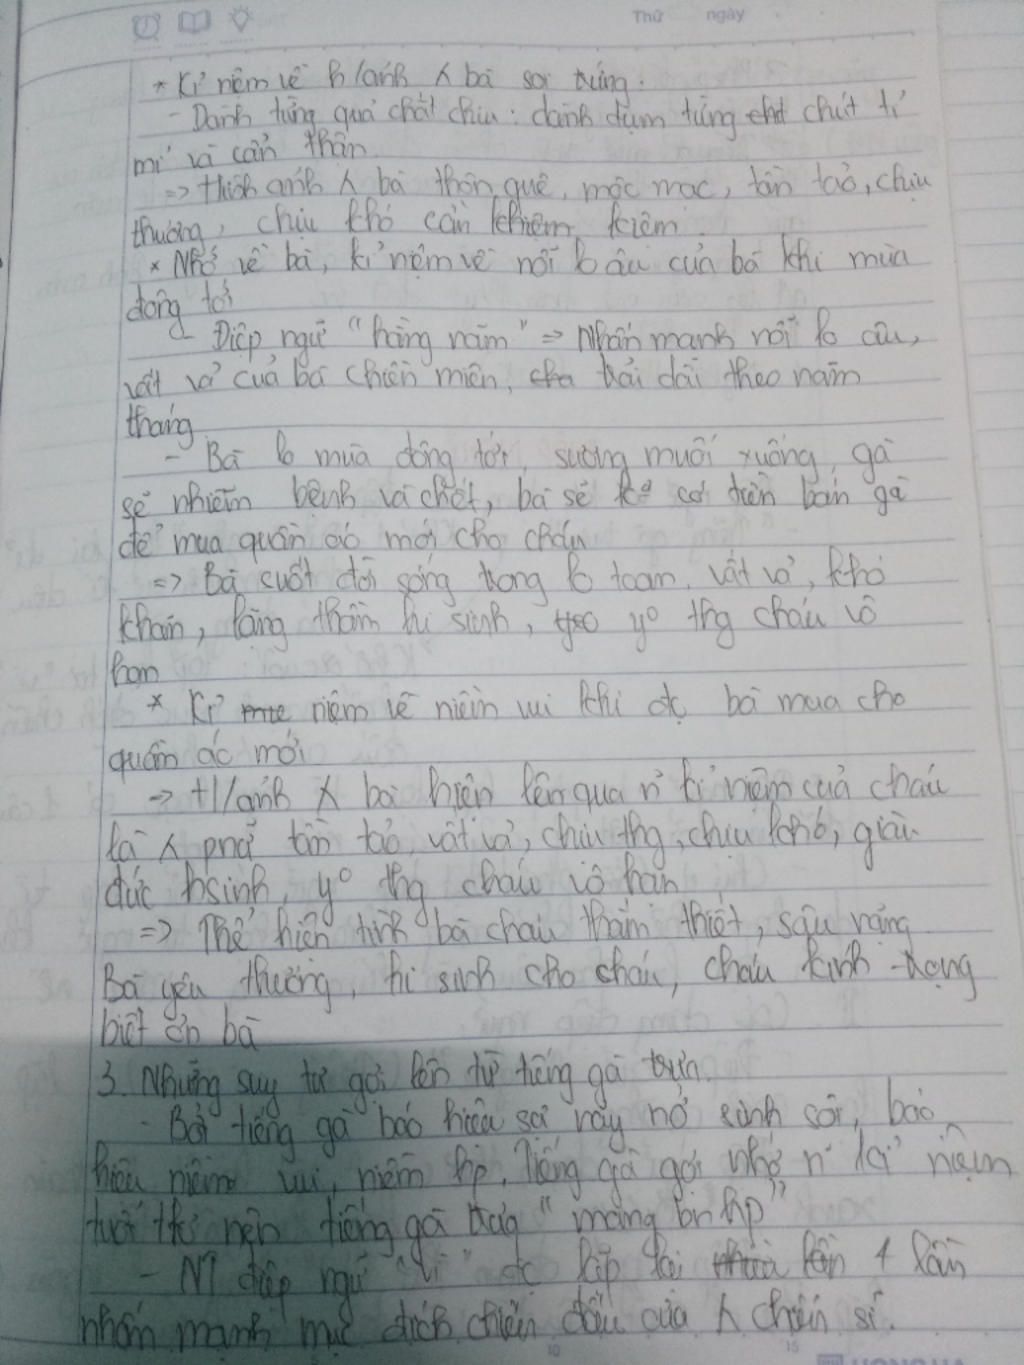 Thứ ngày
* Kỉ niệm về h/ảnh λ bà soi trứng.
- Dành từng quả chắt chiu: dành dụm từng chút tỉ
mỉ và cẩn thận
=> Hình ảnh λ bà thôn quê, mộc mạc, tần tảo, chịu
thương, chịu khó cần kiệm
* Nhớ về bà, kỉ niệm về nỗi lo âu của bà khi mùa
đông tới
- Điệp ngữ "hằng năm" => Nhấn mạnh nỗi lo âu,
vất vả của bà triền miên, trải dài theo năm
tháng
- Bà lo mùa đông tới, sương muối xuống, gà
sẽ nhiễm bệnh và chết, bà sẽ k° có tiền bán gà
để mua quần áo mới cho cháu
=> Bà suốt đời sống trong lo toan, vất vả, khó
khăn, lặng thầm hi sinh, y° thg cháu vô
hạn
* Kỉ niệm về niềm vui khi đc bà mua cho
quần áo mới
-> H/ảnh λ bà hiện lên qua n~ kỉ niệm của cháu
là λ phnữ tần tảo, vất vả, chịu thg, chịu khó, giàu
đức hsinh, y° thg cháu vô hạn
=> Thể hiện tình bà cháu thắm thiết, sâu nặng
Bà yêu thương, hi sinh cho cháu, cháu kính trọng
biết ơn bà
3. Những suy tư gợi lên từ tiếng gà trưa.
- Bởi tiếng gà báo hiệu sự nảy nở sinh sôi, báo
hiệu niềm vui, niềm hp. Tiếng gà gợi nhớ n~ kỉ niệm
tuổi thơ nên tiếng gà trưa "mang bn hp"
- NT điệp ngữ "vì" đc lặp lại 4 lần
nhấn mạnh mục đích chiến đấu của λ chiến sĩ.
10
15